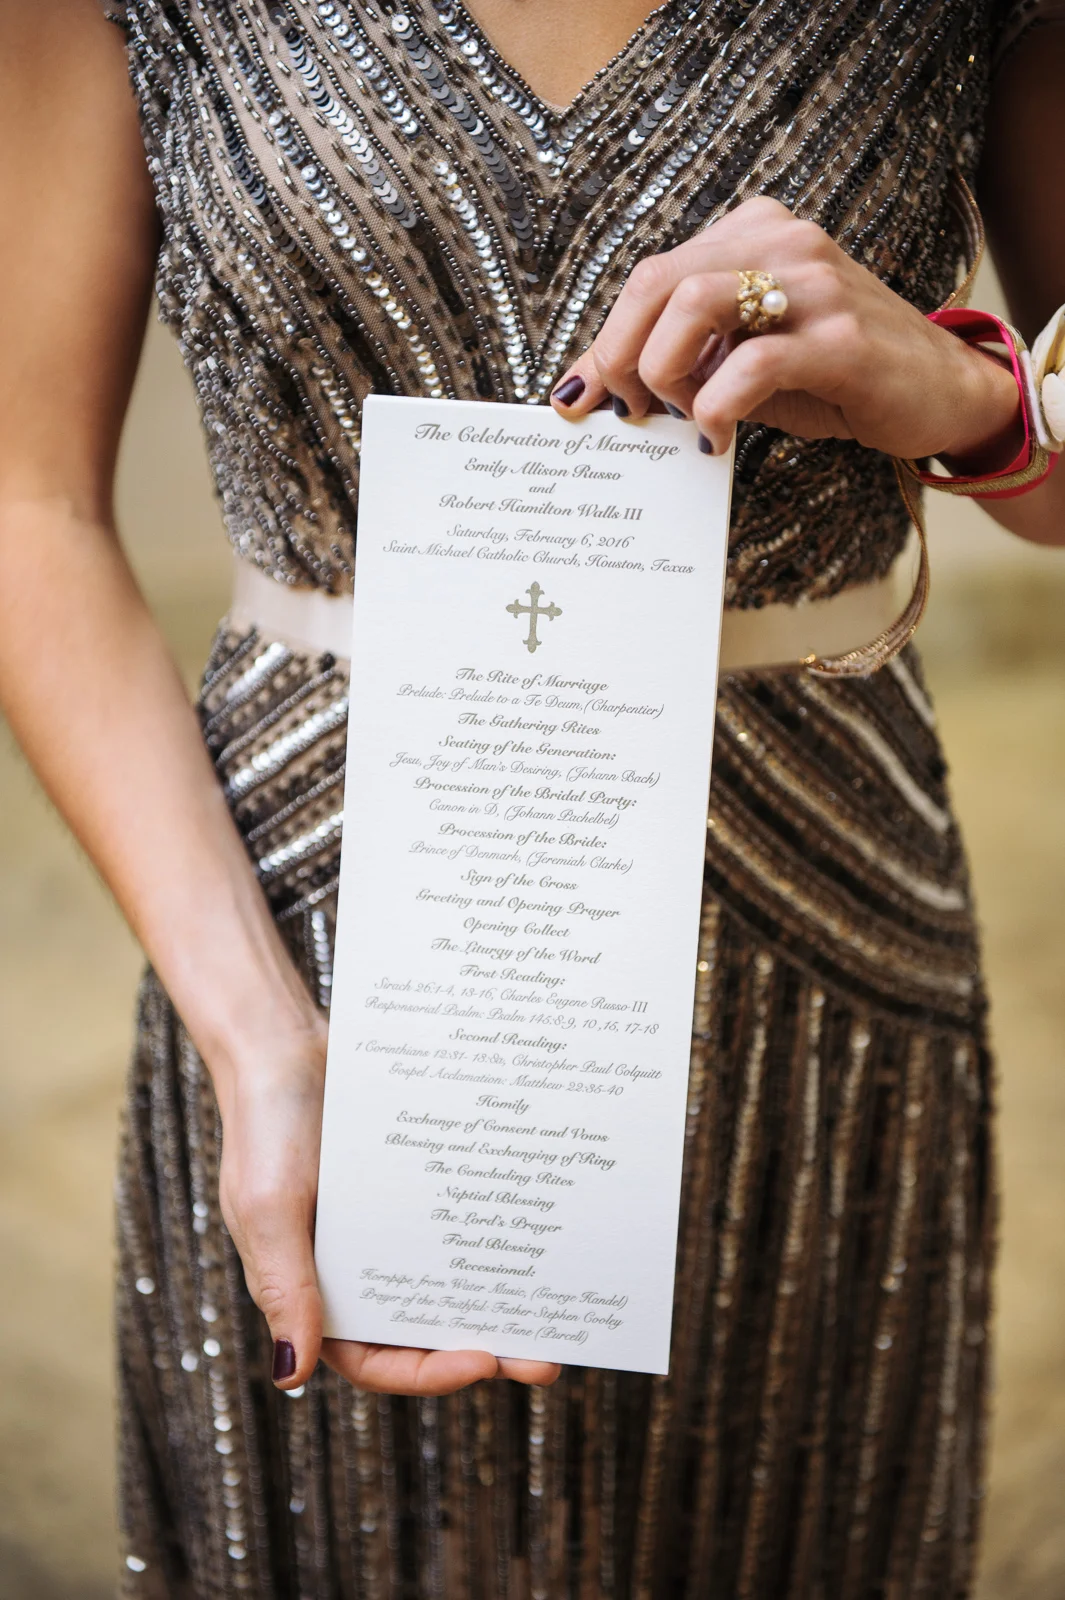 The Celebration of Marriage
Emily Allison Russo
and
Robert Hamilton Walls III
Saturday, February 6, 2016
Saint Michael Catholic Church, Houston, Texas
The Rite of Marriage
Prelude: Prelude to a Te Deum,(Charpentier)
The Gathering Rites
Seating of the Generation:
Jesu, Joy of Man's Desiring, (Johann Bach)
Procession of the Bridal Party:
Canon in D, (Johann Pachelbel)
Procession of the Bride:
Prince of Denmark, (Jeremiah Clarke)
Sign of the Cross
Greeting and Opening Prayer
Opening Collect
The Liturgy of the Word
First Reading:
Sirach 26:1-4, 13-16, Charles Eugene Russo III
Responsorial Psalm: Psalm 145:8-9, 10 ,15, 17-18
Second Reading:
1 Corinthians 12:31- 13:8a, Christopher Paul Colquitt
Gospel Acclamation: Matthew 22:35-40
Homily
Exchange of Consent and Vows
Blessing and Exchanging of Ring
The Concluding Rites
Nuptial Blessing
The Lord's Prayer
Final Blessing
Recessional:
Hornpipe from Water Music, (George Handel)
Prayer of the Faithful- Father Stephen Cooley
Postlude: Trumpet Tune (Purcell)